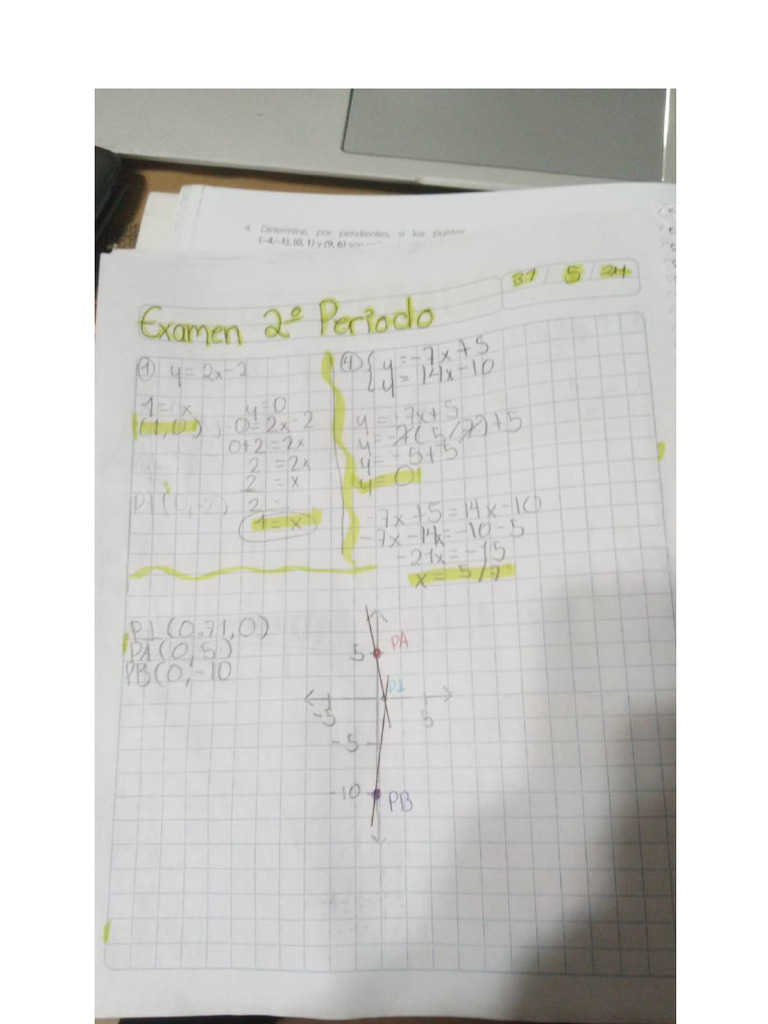 4. Determine, por pendientes, si los puntos
(-4,-1), (0, 1) y (9, 6)
31 / 5 / 24
Examen 2º Periodo
① y = 2x-2
1 = x
(1,0)
y=0
0=2x-2
0+2=2x
2 =2x
2 = x
2
1=x
④ { y = -7x+5
y = 14x-10
y = -7x+5
y = -7(5/7)+5
y = -5+5
y = 0
-7x+5=14x-10
-7x-14x=-10-5
-21x=-15
x = 5/7
PI(0.71,0)
PA(0,5)
PB(0,-10
5
PA
PI
-5
5
-5
-10
PB